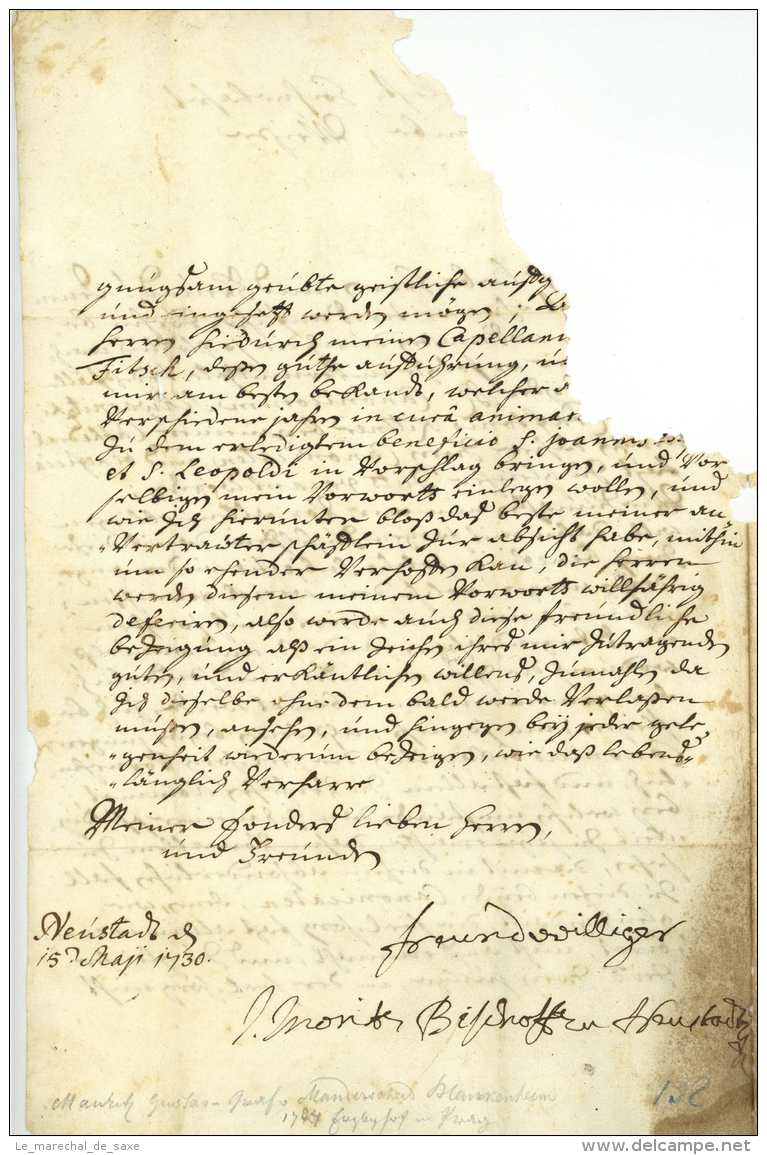 gnugsam geübte geistliche aufg
und eingesetzt werden mögen;
Herren hiedurch meinen Capellan
Fitsch, deßen guthe aufführung, u
mir am besten bekandt, welcher
Verschiedene jahren in curâ animar
zu dem erledigtem beneficio S. Joannis
et S. Leopoldi in Vorschlag bringen, und Vor
selbigen mein Vorworth einlegen wollen, und
wie Ich hierunter bloß das beste meiner an
Vertrauter schäfflein zur absicht habe, mithin
um so ehender Verhoffen kan, die Herren
werden diesem meinem Vorworth willfährig
deferiren, also werde auch diese freundliche
bezeigung alß ein zeichen ihres mir zutragenden
guten, und erkäntlichen willens, zumahlen da
Ich dieselbe ohne dem bald werde Verlaßen
müßen, ansehen, und hingegen bey jeder gele
genheit wiederum bezeigen, wie daß lebens
länglich Verharre
Meiner sonders lieben Herren,
und Freunden
Neustadt d
15 Maji 1730.
freundwilliger
J. Moritz Bischoff zu Neustadt
Moritz Gustav Graf v Manderscheid Blankenheim
1734 Erzbischof v Prag
152
Le_marechal_de_saxe
www.delcampe.net